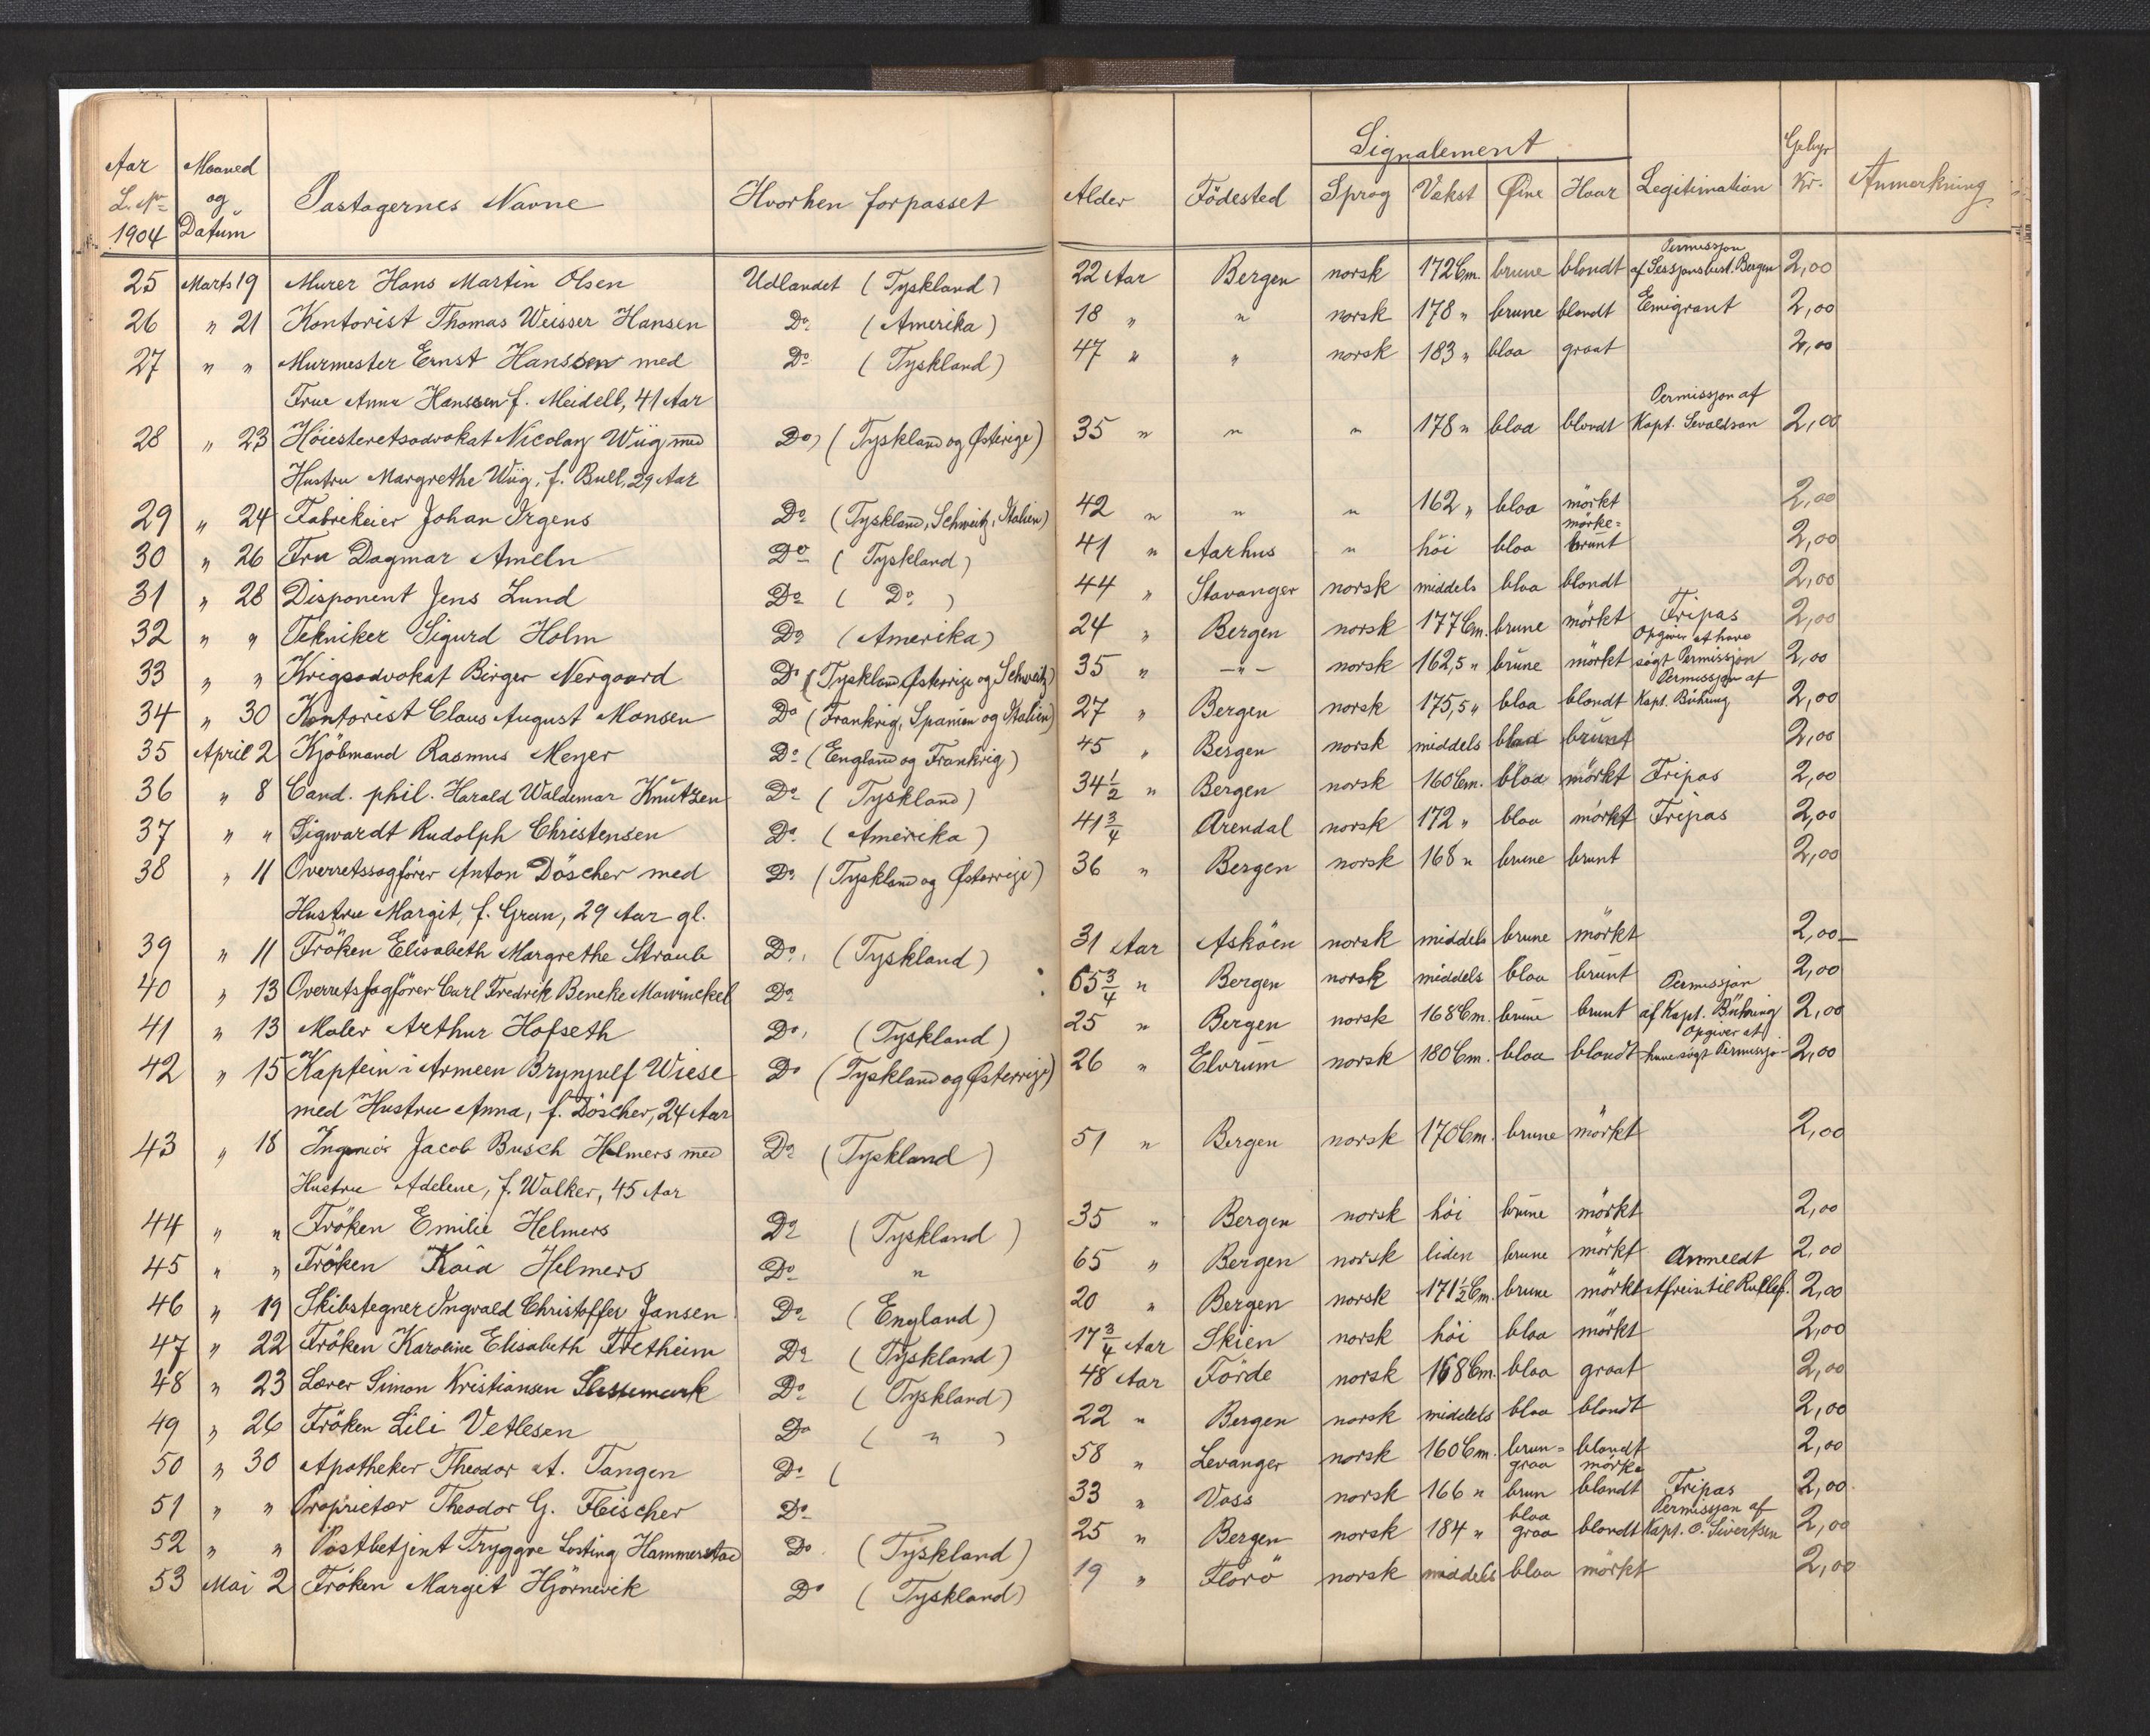 Aar L. No 1904 Maaned og Datum Passagernes Navne Hvorhen forpasset Alder Födested Signalement Sprog Vækst Øine Haar Legitimation Gebyr Kr. Anmerkning
25 Marts 19 Murer Hans Martin Olsen Udlandet (Tyskland) 22 Aar Bergen norsk 172 Cm. brune blondt Permissjon af Sessjonsbest. Bergen 2,00
26 " 21 Kontorist Thomas Weisser Hansen Do (Amerika) 18 " " norsk 178 " brune blondt Emigrant 2,00
27 " " Murmester Ernst Hanssen med Do (Tyskland) 47 " " norsk 183 " blaa graat 2,00
Frue Anna Hanssen f. Meidell, 41 Aar
28 " 23 Höiesteretsadvokat Nicolay Wiig med Do (Tyskland og Østerige) 35 " " " 178 " blaa blondt Permissjon af Kapt. Sevaldson 2,00
Hustru Margrethe Wiig, f. Bull, 29 Aar
29 " 24 Fabrikeier Johan Irgens Do (Tyskland, Schweitz, Italien) 42 " " " 162 " blaa mörkt 2,00
30 " 26 Fru Dagmar Ameln Do (Tyskland) 41 " Aarhus " höi blaa mörke= brunt 2,00
31 " 28 Disponent Jens Lund Do ( Do ) 44 " Stavanger norsk middels blaa blondt 2,00
32 " " Tekniker Sigurd Holm Do (Amerika) 24 " Bergen norsk 177 Cm. brune mörkt Fripas 2,00
33 " " Krigsadvokat Birger Nergaard Do (Tyskland, Østerrige og Schweitz) 35 " —"— norsk 162,5 " brune mörkt Opgiver at have sögt Permissjon 2,00
34 " 30 Kontorist Claus August Monsen Do (Frankrig, Spanien og Italien) 27 " Bergen norsk 175,5 " blaa blondt Permissjon af Kapt. Bühring 2,00
35 April 2 Kjöbmand Rasmus Meyer Do (England og Frankrig) 45 " Bergen norsk middels blaa brunt 2,00
36 " 8 Cand. phil. Harald Waldemar Knutzen Do (Tyskland) 34 1/2 " Bergen norsk 160 Cm. blaa mörkt Fripas 2,00
37 " " Sigwardt Rudolph Christensen Do (Amerika) 41 3/4 Arendal norsk 172 " blaa mörkt Fripas 2,00
38 " 11 Overretssagförer Anton Döscher med Do (Tyskland og Østerrige) 36 " Bergen norsk 168 " brune brunt 2,00
Hustru Margit, f. Gran, 29 Aar gl.
39 " 11 Fröken Elisabeth Margrethe Straub Do, (Tyskland) 31 Aar Asköen norsk middels brune mörkt 2,00
40 " 13 Overretssagförer Carl Fredrik Beneke Mowinckel Do 65 3/4 " Bergen norsk middels blaa brunt 2,00
41 " 13 Maler Arthur Hofseth Do, (Tyskland) 25 " Bergen norsk 168 Cm. brune brunt Permissjon af Kapt. Bühring 2,00
42 " 15 Kaptein i Armeen Brynjulf Wiese Do (Tyskland og Østerrige) 26 " Elvrum norsk 180 Cm. blaa blondt Opgiver at have sögt Permissjo- 2,00
med Hustru Anna, f. Döscher, 24 Aar
43 " 18 Ingeniör Jacob Busch Helmers med Do (Tyskland) 51 " Bergen norsk 170 Cm. brune mörkt 2,00
Hustru Adelene, f. Walker, 45 Aar
44 " " Fröken Emilie Helmers Do (Tyskland) 35 " Bergen norsk höi brune mörkt 2,00
45 " " Fröken Kaia Helmers Do " 65 " Bergen norsk liden brune mörkt 2,00
46 " 19 Skibstegner Ingvald Christoffer Jansen Do (England) 20 " Bergen norsk 171 1/2 Cm. brune mörkt Anmeldt Afreise til Rullef. 2,00
47 " 22 Fröken Karoline Elisabeth Fretheim Do (Tyskland) 17 3/4 Aar Skien norsk höi blaa mörkt 2,00
48 " 23 Lærer Simon Kristiansen Do (Tyskland) 48 Aar Förde norsk 168 Cm. blaa graat 2,00
49 " 26 Fröken Lili Vetlesen Do ( " ) 22 " Bergen norsk middels blaa blondt 2,00
50 " 30 Apotheker Theodor A. Tangen Do ( 58 " Levanger norsk 160 Cm. brun= graa blondt 2,00
51 " " Proprietær Theodor G. Fleischer Do 33 " Voss norsk 166 " brun mörke blondt Fripas 2,00
52 " " Postbetjent Tryggve Losting Hammerstad Do (Tyskland) 25 " Bergen norsk 184 " blaa graa blondt Permissjon af Kapt. O. Sivertsen 2,00
53 Mai 2 Fröken Margit Hjörnevik Do (Tyskland) 19 " Florö norsk middels blaa mörkt 2,00